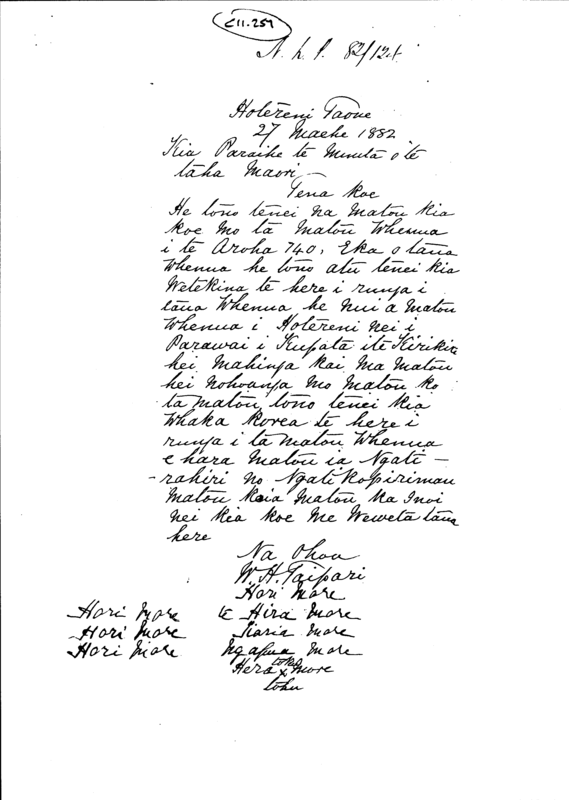 C11.257
N. L. P. 82/124
Hotereni Taone
27 Maehe 1882
Kia Paraihe te Minita o te
taha Maori —
Tena koe
He tono tenei na Matou kia
koe mo ta Matou Whenua
i te Aroha 740, Eka o taua
Whenua he tono atu tenei kia
Wetekina te here i runga i
taua Whenua he nui a Matou
Whenua i Hotereni nei i
Parawai i Kupata i te Kirikiri
hei Mahinga kai Ma Matou
hei Nohoanga Mo Matou ko
ta Matou tono tenei kia
Whaka korea te here i
runga i ta Matou Whenua
e hara Matou ia Ngati –
- rahiri no Ngatikopirimau
Matou koia Matou ka Inoi
nei kia koe Me Weweta taua
here
Na Ohou
W. H. Taipari
Hori More
Hori More te Hira More
Hori More Tiaria More
Hori More Ngapua More
Hera x More
tohu